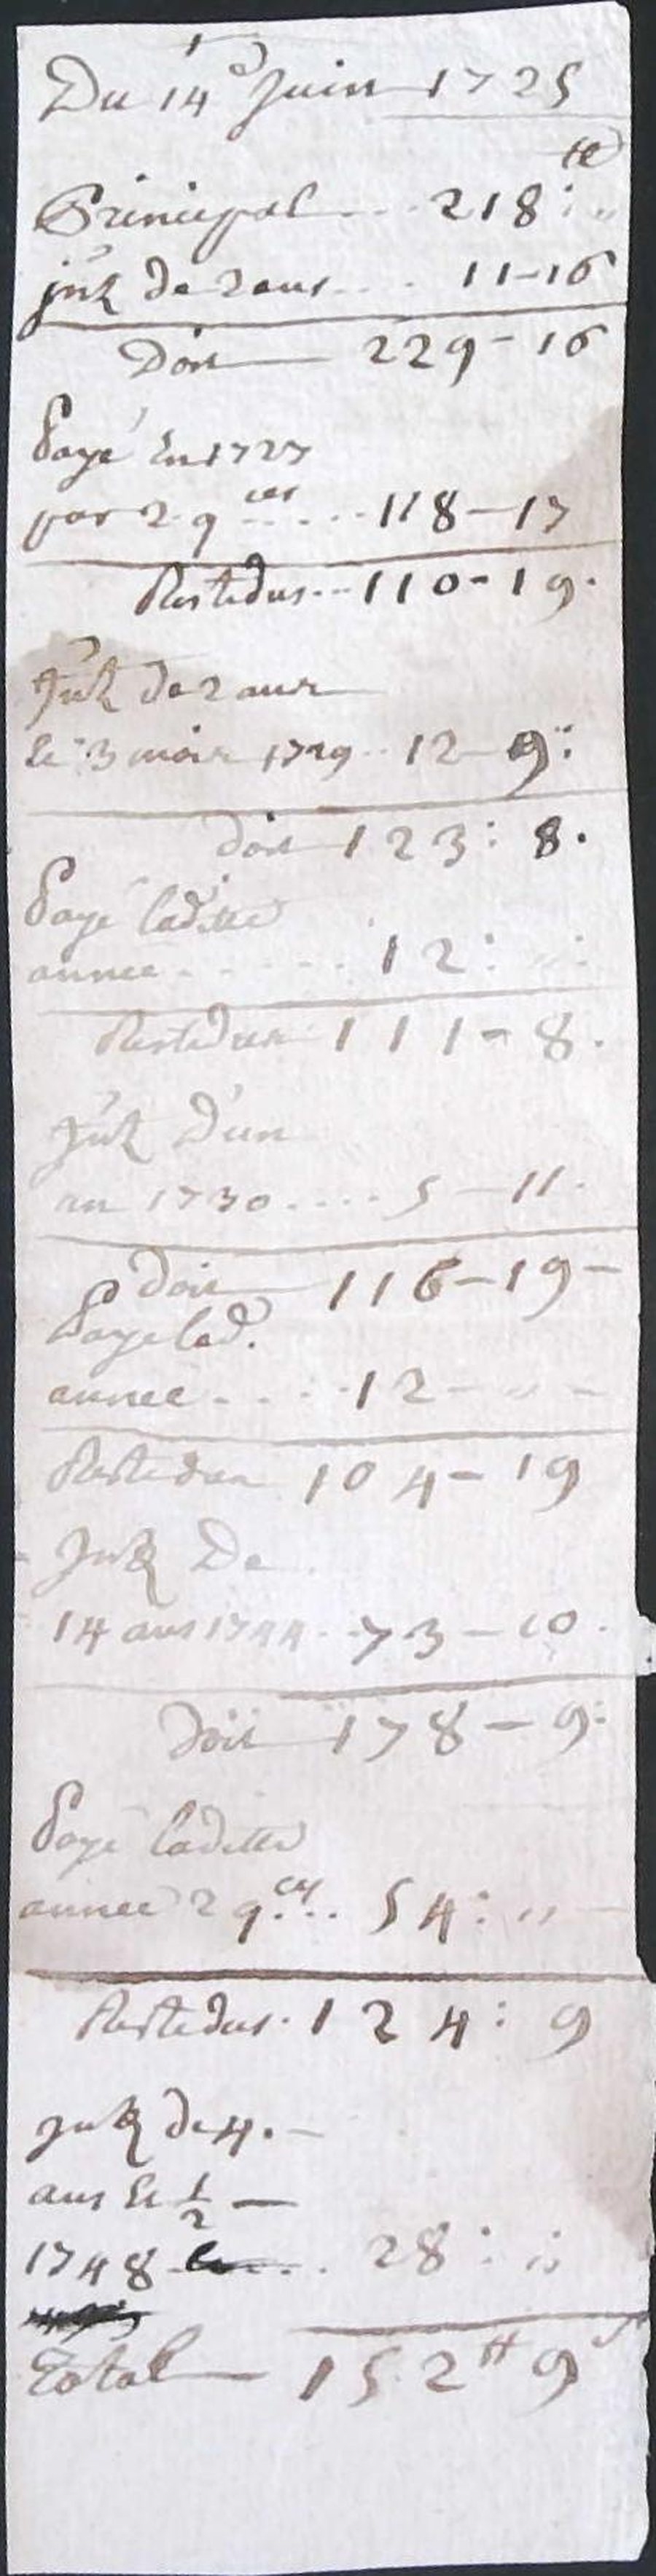 Du 14e Juin 1725
tt
Principal ... 218 : "
jntz de 2 ans ... 11-16
Doit 229-16
Payé En 1727
par 2 q ces ... 118-17
Reste dus ... 110-19.
Jntz de 2 ans
Et 3 mois 1729 .. 12-9 :
doit 123 : 8.
Payé laditte
année ..... 12 : " :
Reste dus 111-8.
Jntz D'un
an 1730 .... 5-11.
Doit 116-19-
Paye lad.
année .... 12-"-
Reste dus 104-19
Jntz De
14 ans 1744 .. 73-10.
Doit 178-9 :
Payé laditte
année 2 q.ces .. 54 : " -
Reste dus . 124 : 9
jntz de 4. -
ans Et 1/2 -
1748 ... 28 : "
Total 152 tt 9 s